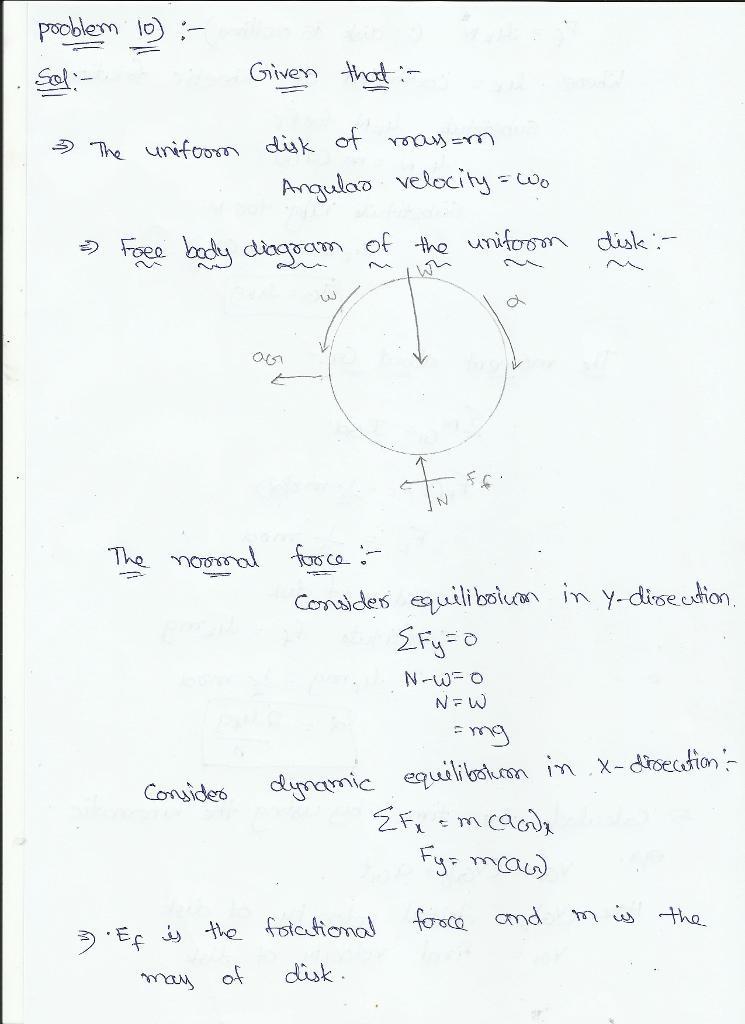 problem 10) :-
Sol:- Given that :-
⇒ The uniform disk of mass=m
Angular velocity = ω₀
⇒ Free body diagram of the uniform disk :-
W
ω
α
aG
Ff.
N
The normal force :-
Consider equilibrium in y-direction.
ΣFy=0
N-W=0
N=W
=mg
Consider dynamic equilibrium in x-direction:-
ΣFx = m(aG)x
Fy = m(aG)
⇒ . Ff is the frictional force and m is the
mass of disk.